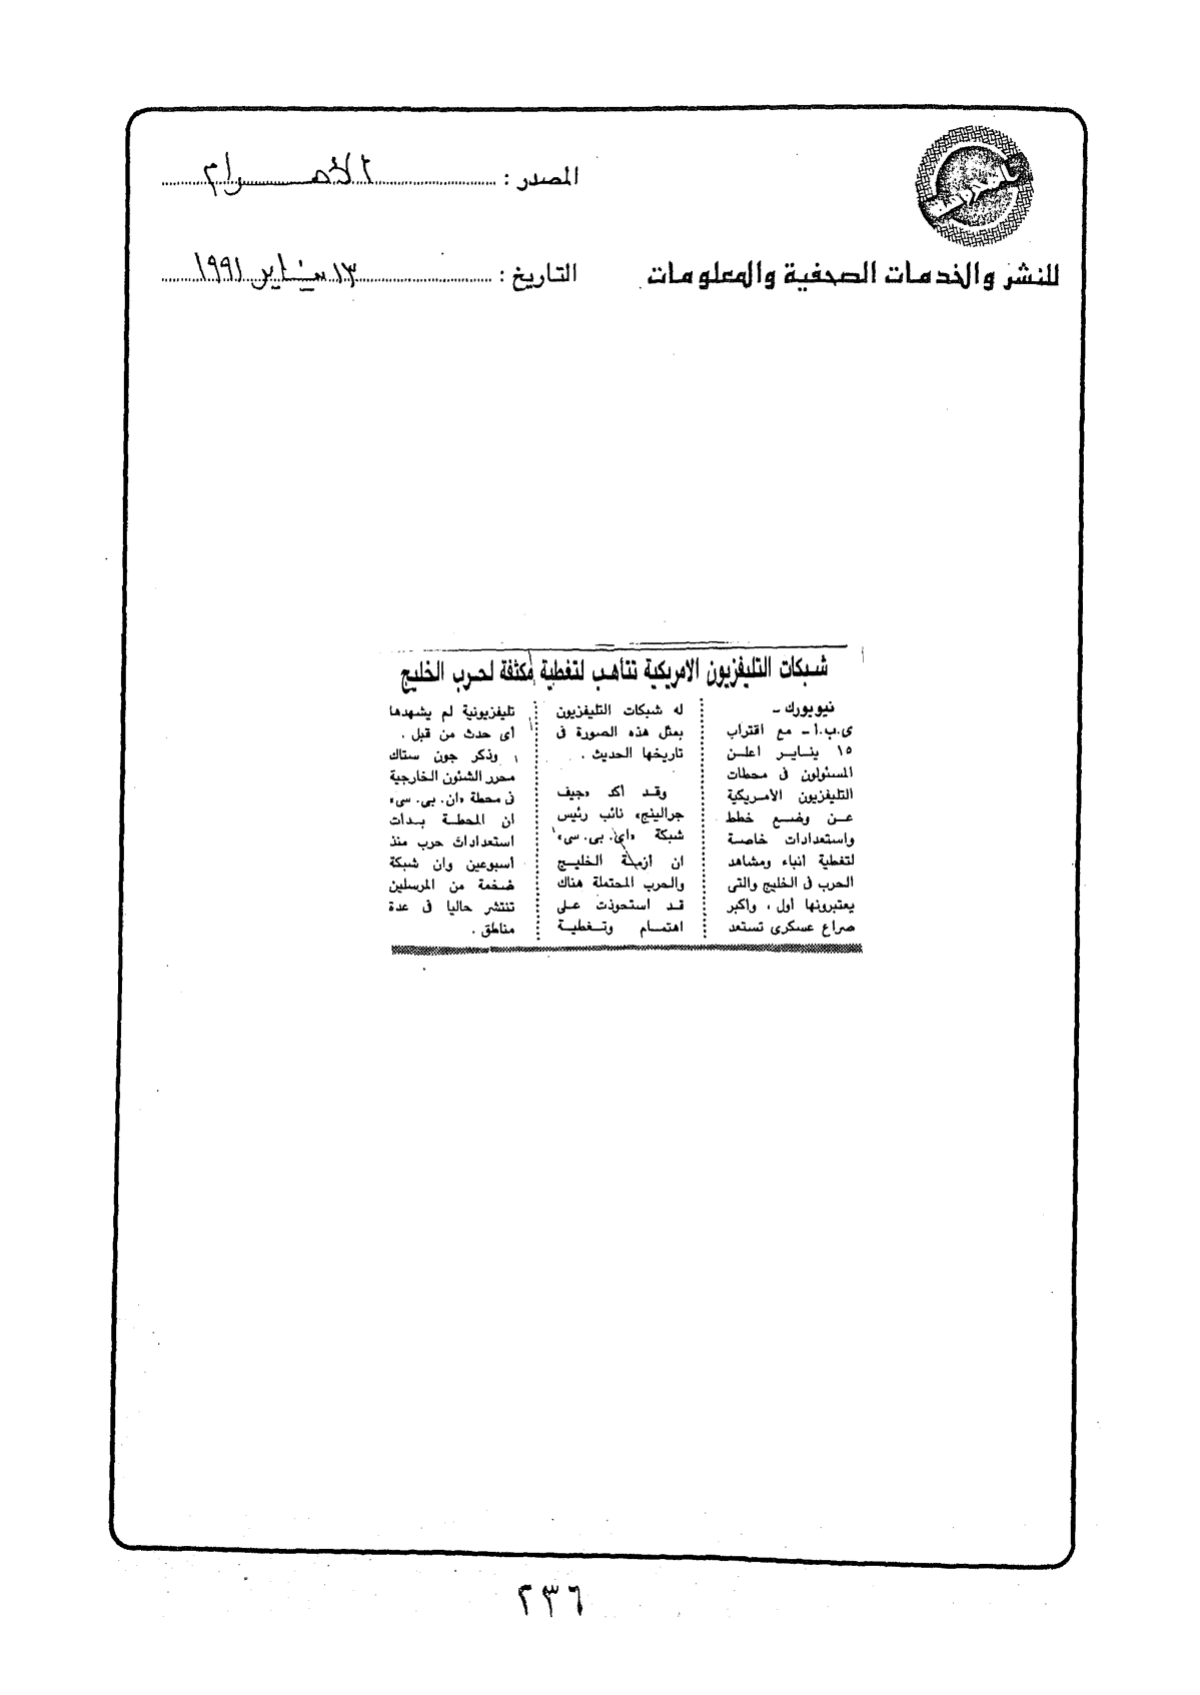 المصدر : الأهرام
للنشر والخدمات الصحفية والمعلومات
التاريخ : ١٣ يناير ١٩٩١
شبكات التليفزيون الامريكية تتأهب لتغطية مكثفة لحرب الخليج
نيويورك -
ى.ب.ا - مع اقتراب
١٥ يناير اعلن
المسئولون فى محطات
التليفزيون الأمريكية
عن وضع خطط
واستعدادات خاصة
لتغطية انباء ومشاهد
الحرب فى الخليج والتى
يعتبرونها أول ، واكبر
صراع عسكرى تستعد
له شبكات التليفزيون
بمثل هذه الصورة فى
تاريخها الحديث .
وقد أكد «جيف
جرالينج» نائب رئيس
شبكة «اى. بى. سى»
ان أزمة الخليج
والحرب المحتملة هناك
قد استحوذت على
اهتمام وتغطية
تليفزيونية لم يشهدها
أى حدث من قبل .
وذكر جون ستاك
محرر الشئون الخارجية
فى محطة «ان. بى. سى»
ان المحطة بدأت
استعدادات حرب منذ
اسبوعين وان شبكة
ضخمة من المرسلين
تنتشر حاليا فى عدة
مناطق .
٢٣٦